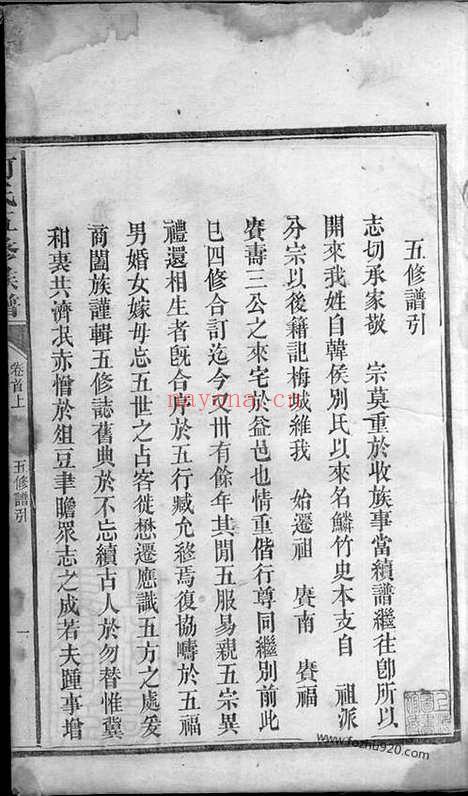 五修譜引
志切承家敬　宗莫重於收族事當續譜繼往卽所以
開來我姓自韓侯別氏以來名鱗竹史本支自　祖派
分宗以後籍記梅城維我　始遷祖　賡南　賡福
賡壽三公之來宅於益邑也情重偕行尊同繼別前此
已四修合訂迄今又卅有餘年其閒五服易親五宗異
禮還相生者旣合莩於五行臧允終焉復協疇於五福
男婚女嫁毋忘五世之占客徙懋遷應識五方之處爰
商闔族謹輯五修誌舊典於不忘續古人於勿替惟冀
和衷共濟泯赤憎於俎豆聿瞻眾志之成若夫踵事增
何氏五修族譜
卷首上
五修譜引
一
nayona.cn
www.fozhu920.com